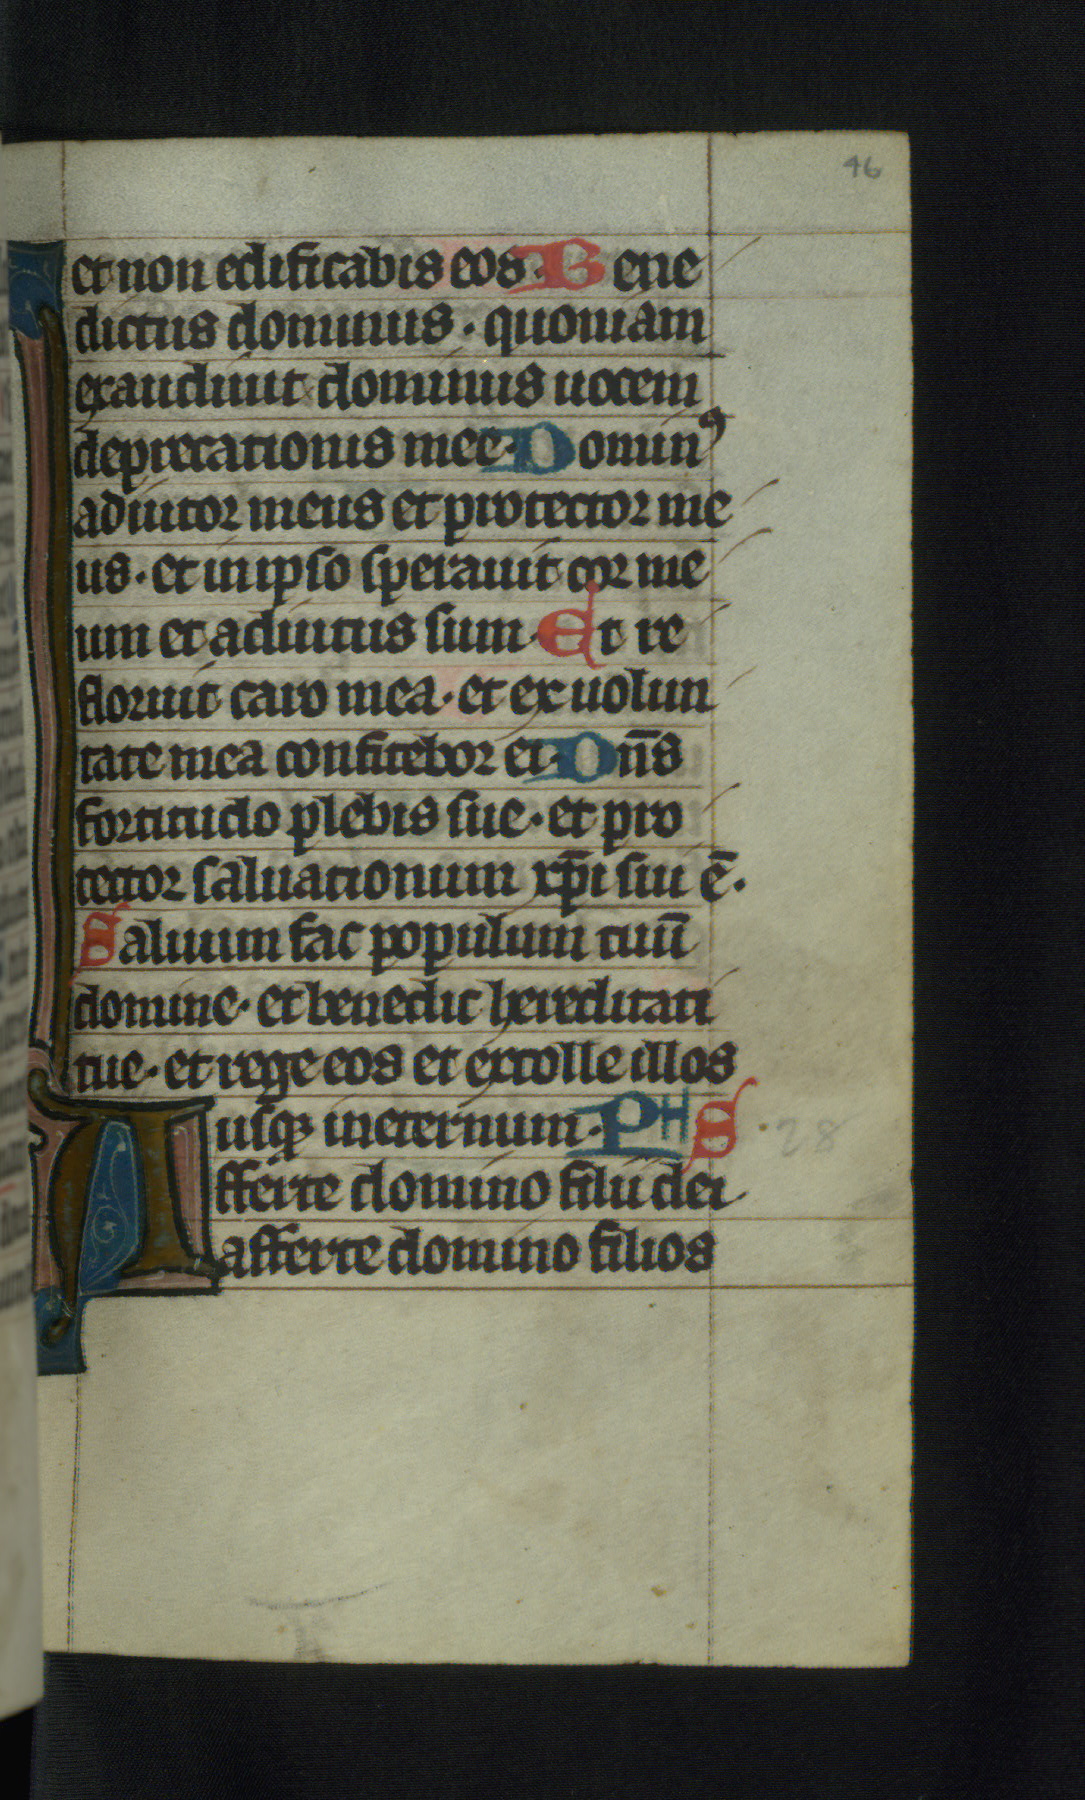 46
et non edificabis eos. Bene
dictus dominus. quoniam
exaudiuit dominus uocem
deprecationis mee. Dominꝰ
adiutor meus et protector me
us. et in ipso sperauit cor me
um et adiutus sum. Et re
floruit caro mea. et ex uolun
tate mea confitebor ei. Dn̄s
fortitudo plebis sue. et pro
tector saluationum xp̄i sui ē.
Saluum fac populum tuū
domine. et benedic hereditati
tue. et rege eos et extolle illos
usqꝫ in eternum. PHS 28
Afferte domino filii dei.
afferte domino filios